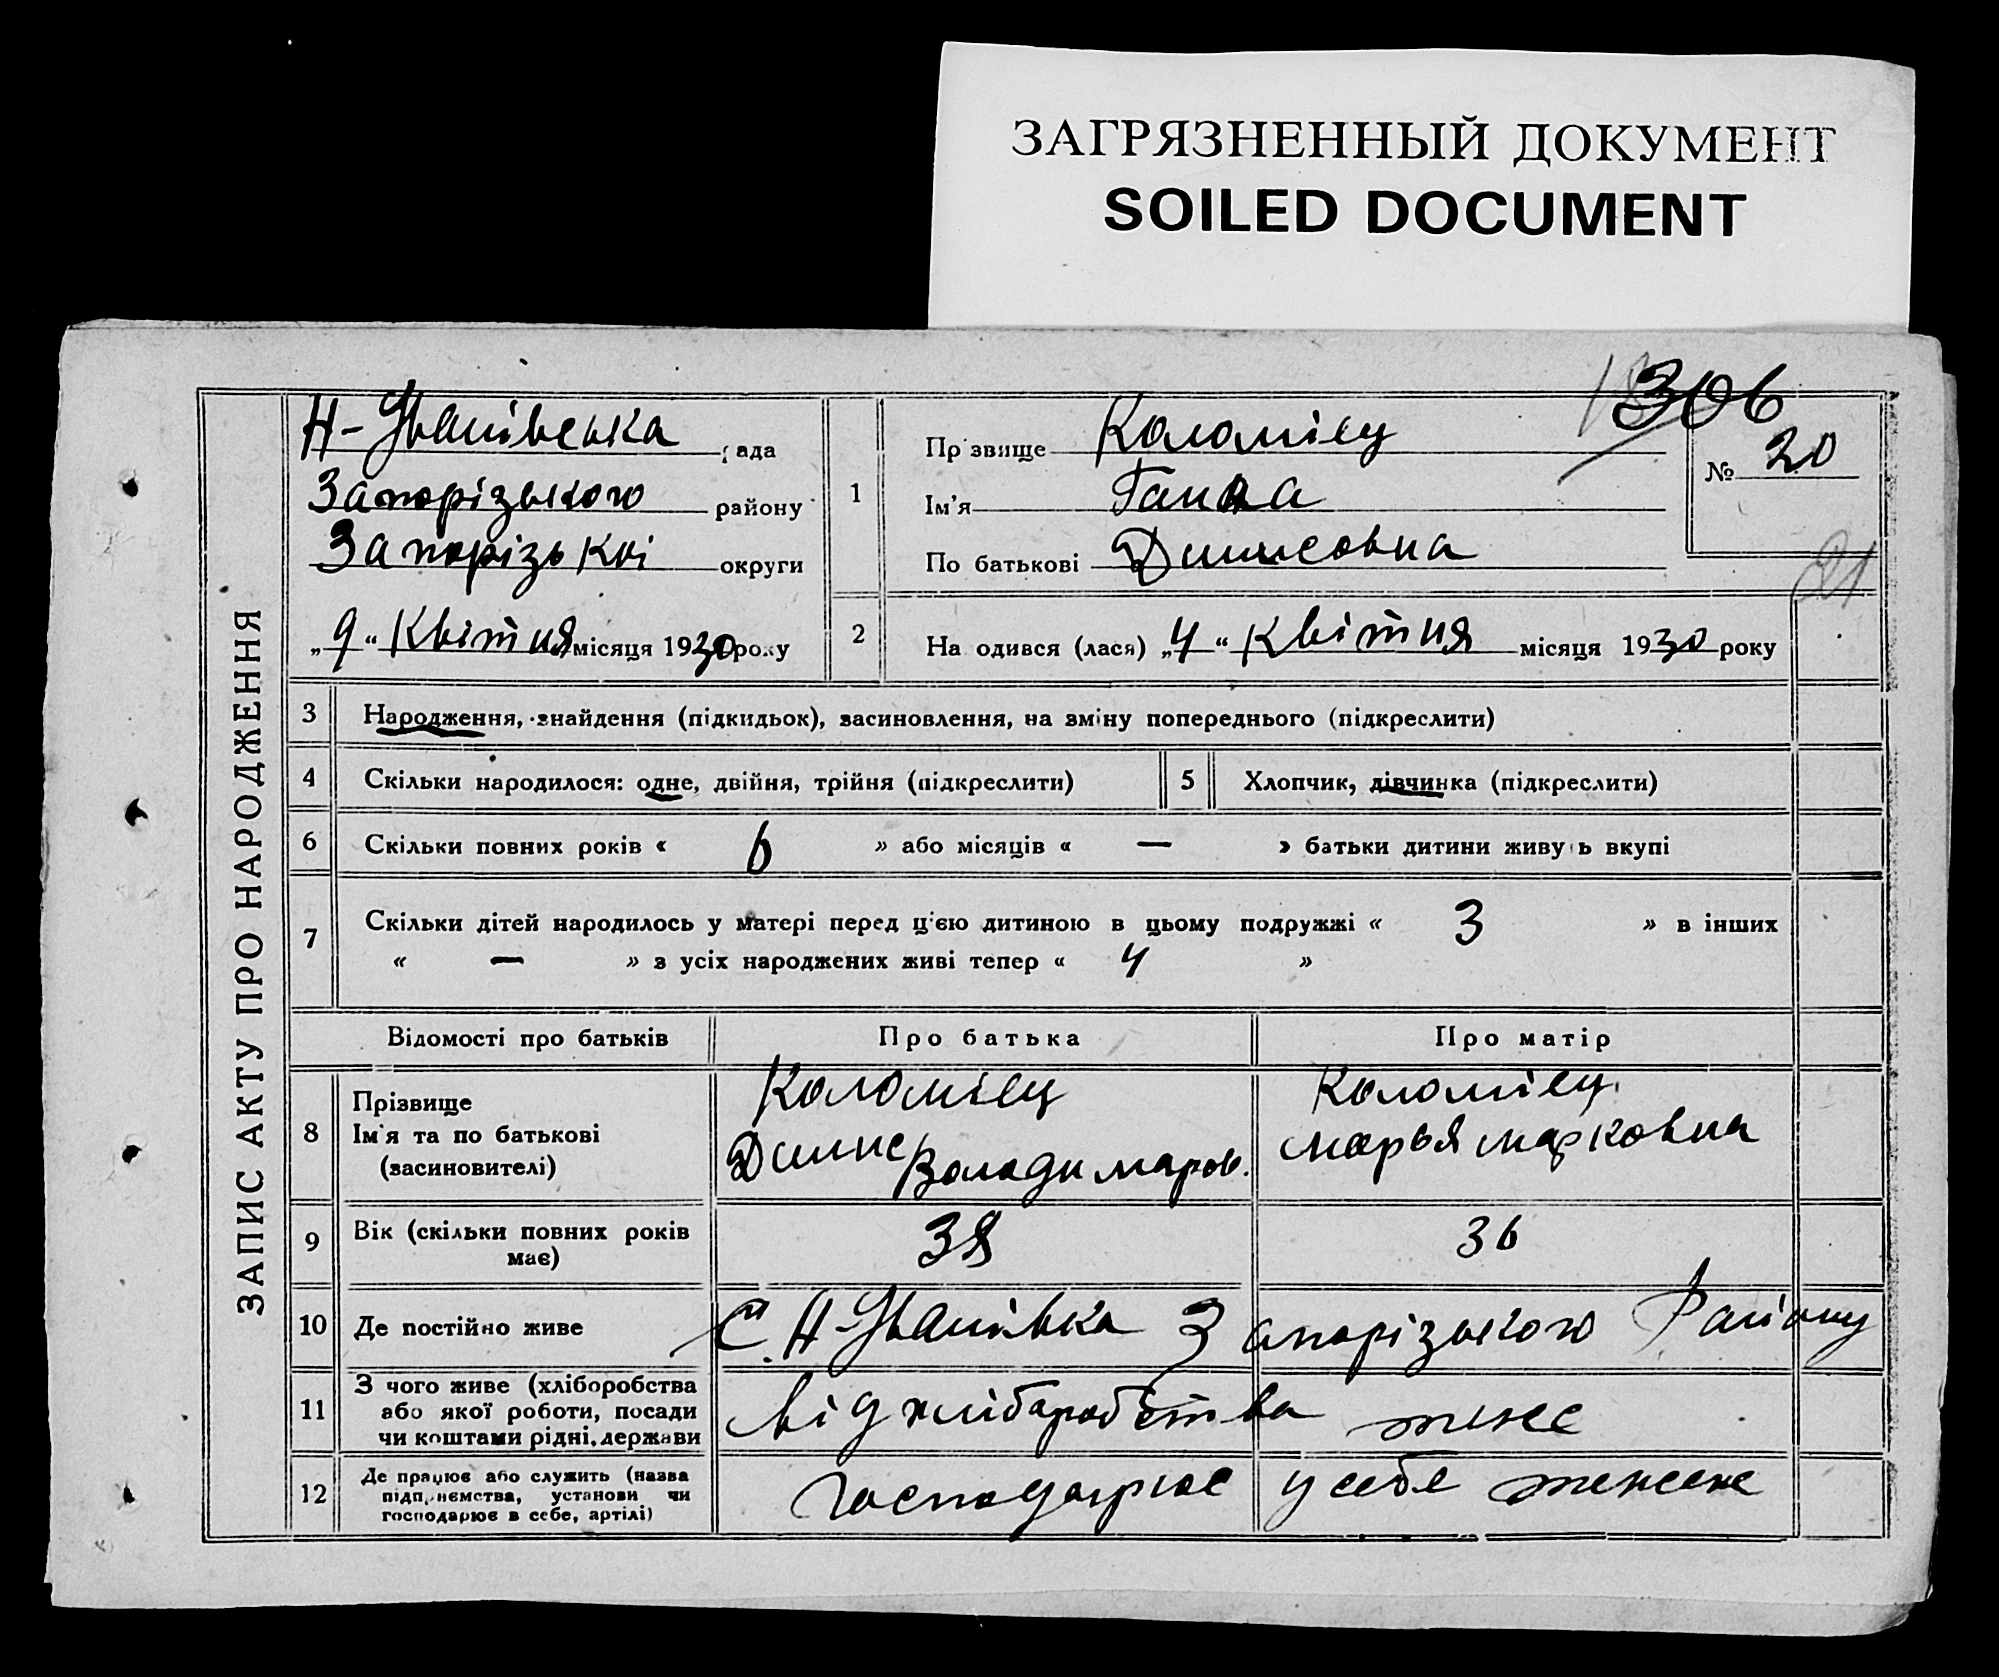 ЗАГРЯЗНЕННЫЙ ДОКУМЕНТ
SOILED DOCUMENT
306
ЗАПИС АКТУ ПРО НАРОДЖЕННЯ
Н-Іванівська рада
Запорізького району
Запорізької округи
„9“ Квітня місяця 1930 року
1
Прізвище Коломієц
Ім'я Ганна
По батькові Динисовна
№ 20
21
2 Народився (лася) „4“ Квітня місяця 1930 року
3 Народження, знайдення (підкидьок), засиновлення, на зміну попереднього (підкреслити)
4 Скільки народилося: одне, двійня, трійня (підкреслити) 5 Хлопчик, дівчинка (підкреслити)
6 Скільки повних років « 6 » або місяців « — » батьки дитини живуть вкупі
7 Скільки дітей народилось у матері перед цією дитиною в цьому подружжі « 3 » в інших
« — » з усіх народжених живі тепер « 4 »
Відомості про батьків Про батька Про матір
8 Прізвище
Ім'я та по батькові
(засиновителі)
Коломієц
Динис Володимиров.
Коломієц
Марья Марковна
9 Вік (скільки повних років має) 38 36
10 Де постійно живе С. Н-Іванівка Запорізького Району
11 З чого живе (хліборобства
або якої роботи, посади
чи коштами рідні, держави
від хліборобства теже
12 Де працює або служить (назва
підприємства, установи чи
господарює в себе, артілі)
господарює у себе